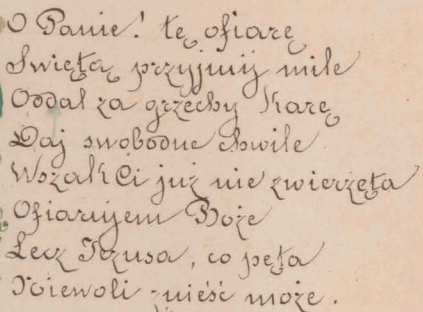 O Panie! tę ofiarę
Swiętą przyjmij mile
Oddal za grzechy Karę
Daj swobodne chwile
Wszak Ci już nie zwierzęta
Ofiarujem Boże
Lecz Jezusa, co pęta
Niewoli znieść może.